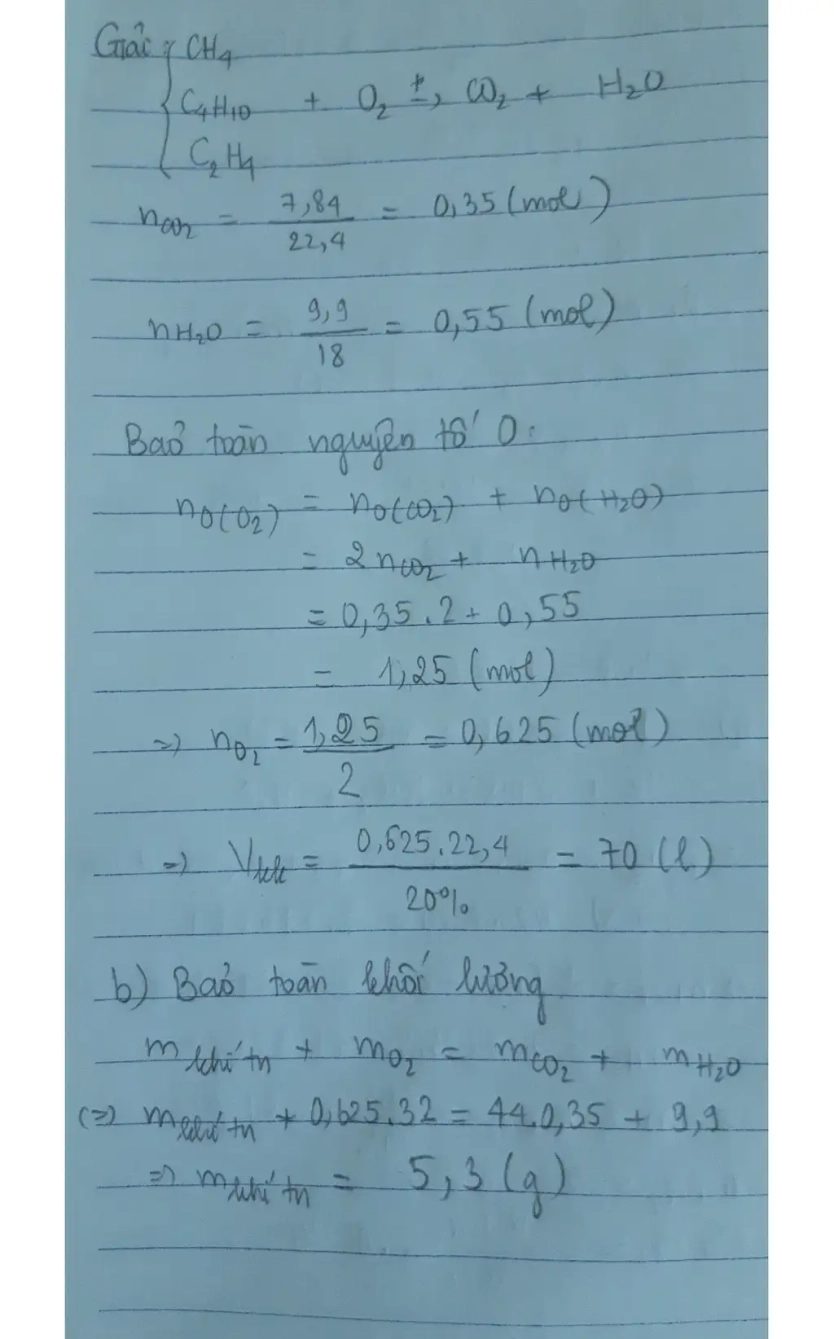 Giải { CH4
C4H10 + O2 t°→ CO2 + H2O
C2H4
nCO2 = 7,84 / 22,4 = 0,35 (mol)
nH2O = 9,9 / 18 = 0,55 (mol)
Bảo toàn nguyên tố O:
nO(O2) = nO(CO2) + nO(H2O)
= 2nCO2 + nH2O
= 0,35.2 + 0,55
= 1,25 (mol)
=> nO2 = 1,25 / 2 = 0,625 (mol)
=> Vkk = 0,625.22,4 / 20% = 70 (l)
b) Bảo toàn khối lượng
mkhí tn + mO2 = mCO2 + mH2O
(=) mkhí tn + 0,625.32 = 44.0,35 + 9,9
=> mkhí tn = 5,3 (g)